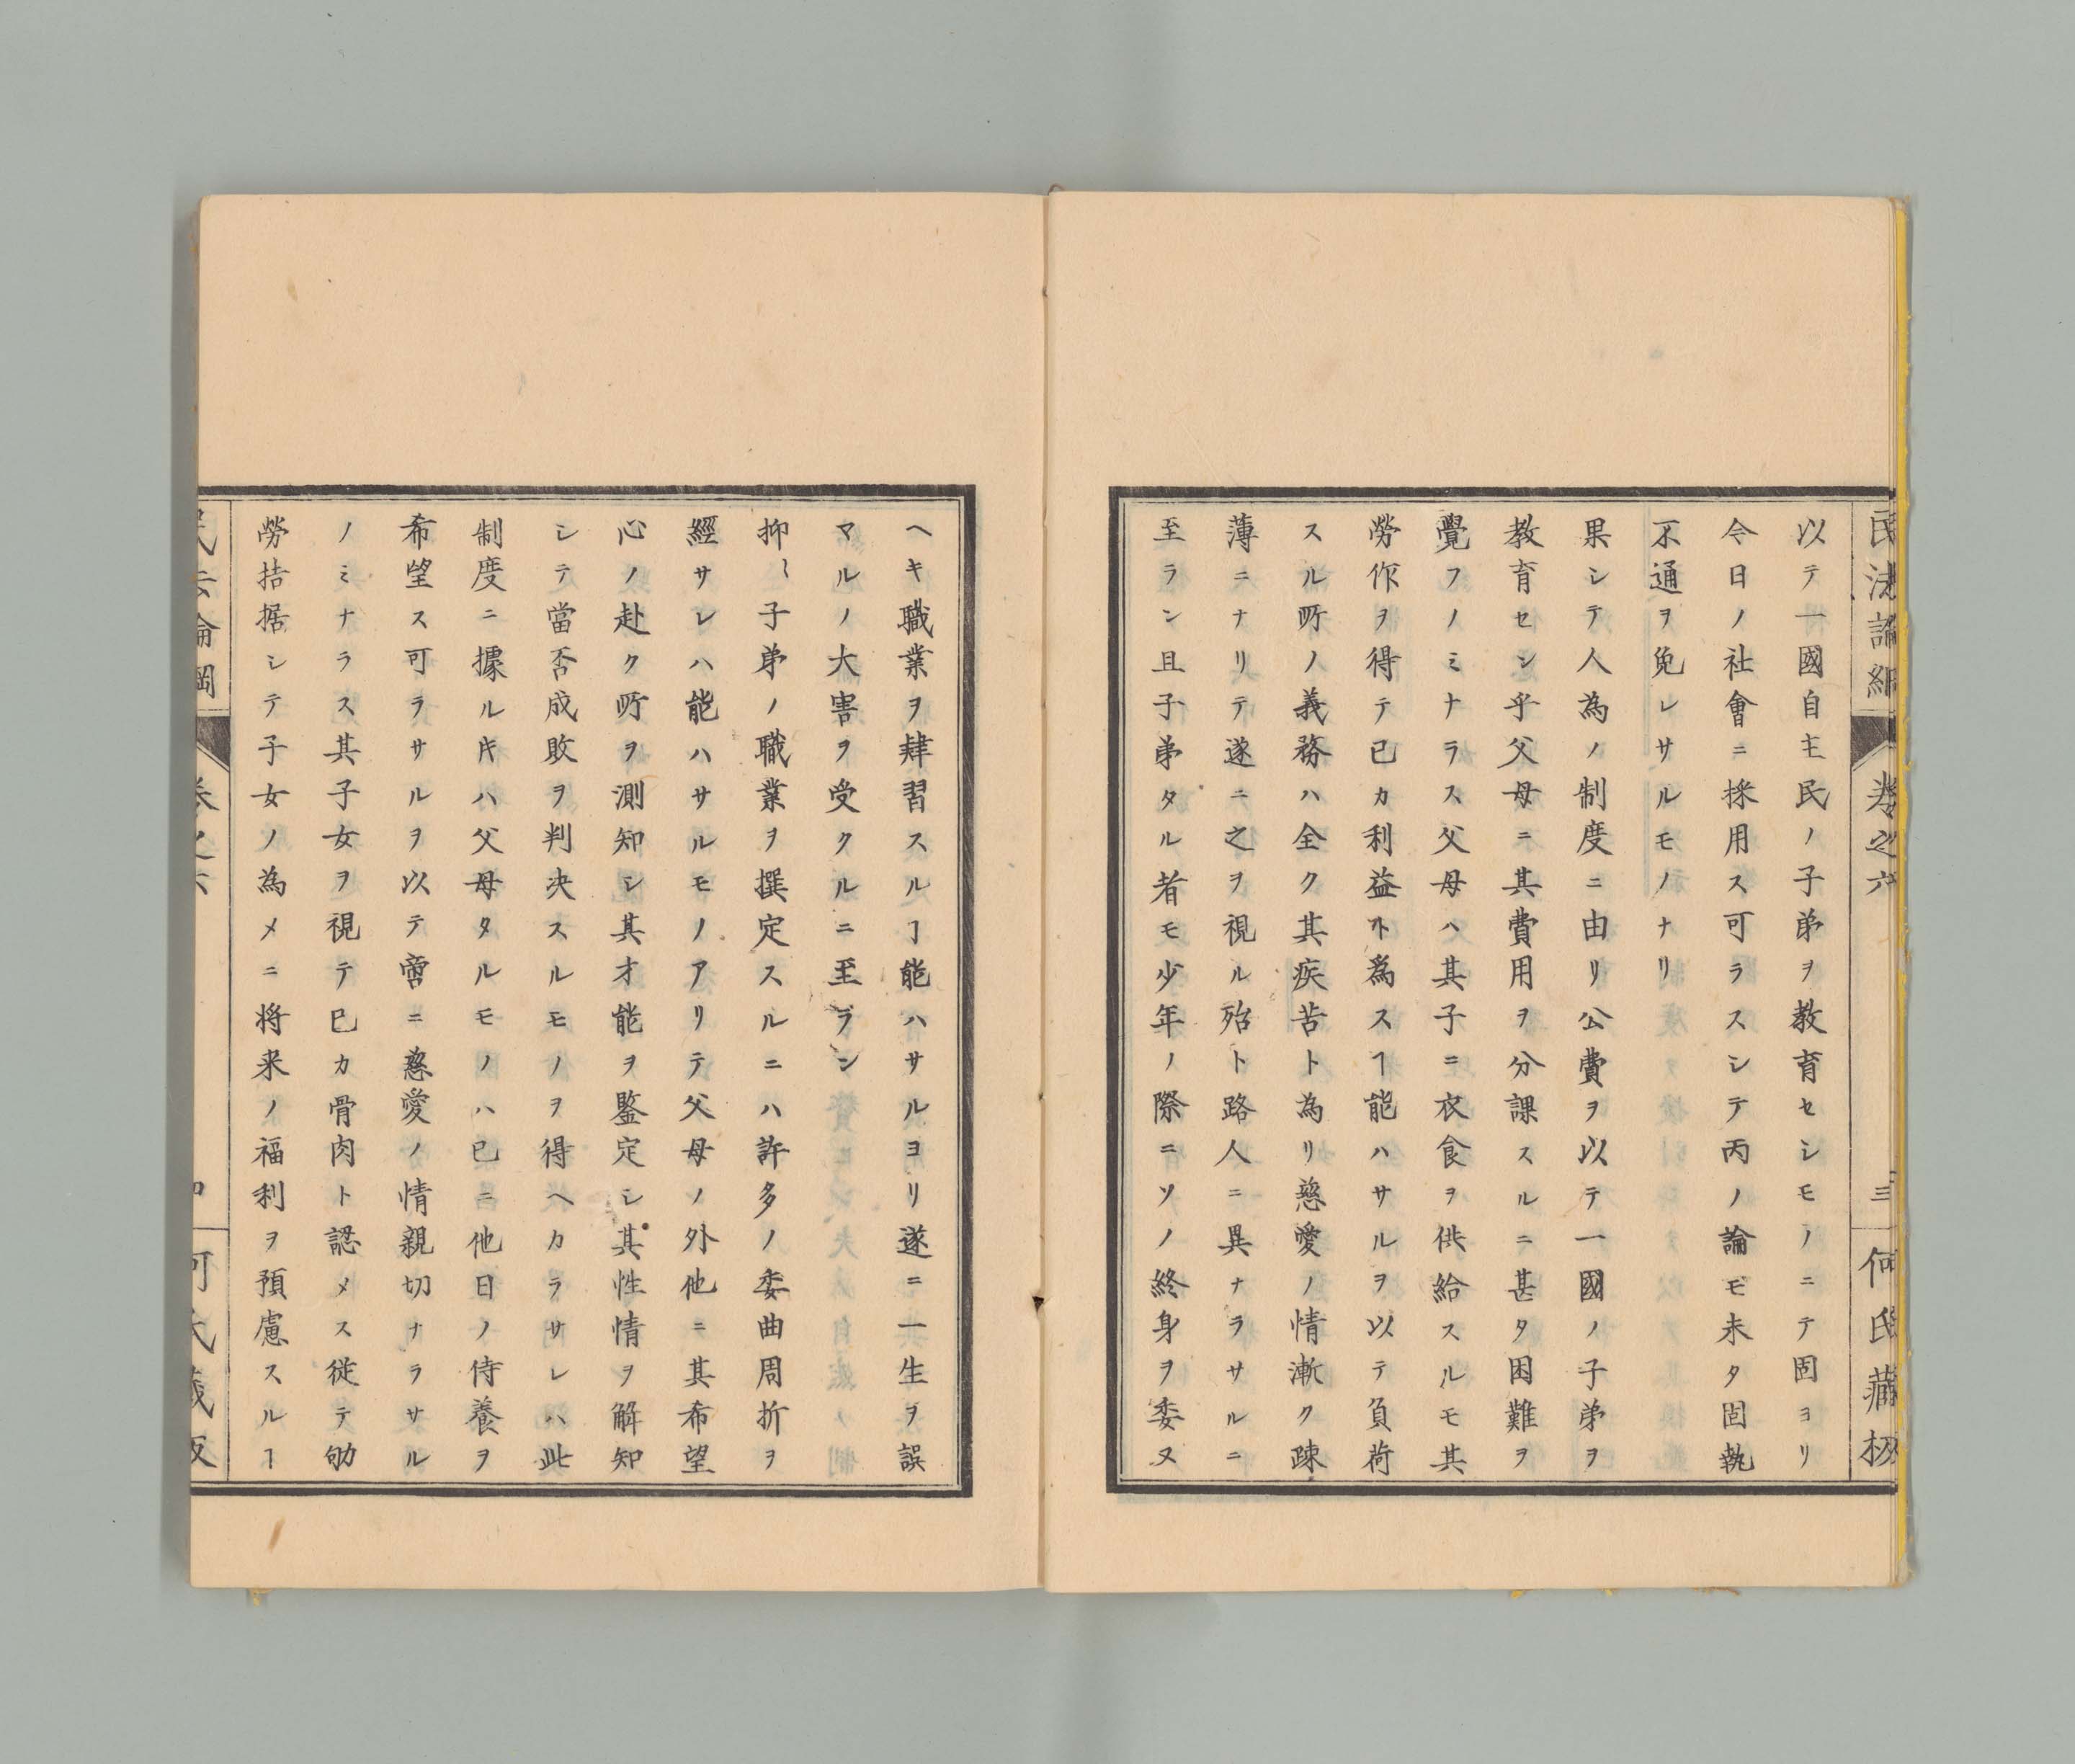 民法論綱 卷之六 三 何氏藏板
以テ一國自主民ノ子弟ヲ教育セシモノニテ固ヨリ
今日ノ社會ニ採用ス可ラスシテ丙ノ論モ未タ固執
不通ヲ免レサルモノナリ
果シテ人為ノ制度ニ由リ公費ヲ以テ一國ノ子弟ヲ
教育セン乎父母ニ其費用ヲ分課スルニ甚タ困難ヲ
覺フノミナラス父母ハ其子ニ衣食ヲ供給スルモ其
勞作ヲ得テ己カ利益ト為スヿ能ハサルヲ以テ負荷
スル所ノ義務ハ全ク其疾苦ト為リ慈愛ノ情漸ク疎
薄ニナリテ遂ニ之ヲ視ル殆ト路人ニ異ナラサルニ
至ラン且子弟タル者モ少年ノ際ニソノ終身ヲ委ヌ
ヘキ職業ヲ肄習スルヿ能ハサルヨリ遂ニ一生ヲ誤
マルノ大害ヲ受クルニ至ラン
抑〻子弟ノ職業ヲ撰定スルニハ許多ノ委曲周折ヲ
經サレハ能ハサルモノアリテ父母ノ外他ニ其希望
心ノ赴ク所ヲ測知シ其才能ヲ鑒定シ其性情ヲ解知
シテ當否成敗ヲ判决スルモノヲ得ヘカラサレハ此
制度ニ據ルキハ父母タルモノハ已ニ他日ノ侍養ヲ
希望ス可ラサルヲ以テ啻ニ慈愛ノ情親切ナラサル
ノミナラス其子女ヲ視テ己カ骨肉ト認メス従テ劬
勞拮据シテ子女ノ為メニ将来ノ福利ヲ預慮スルヿ
民法論綱 卷之六 四 何氏藏板